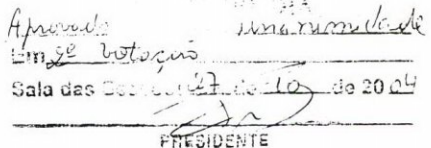 Aprovado unanimidade
Em 2ª votação
Sala das Sessões 27 de 10 de 2004
PRESIDENTE